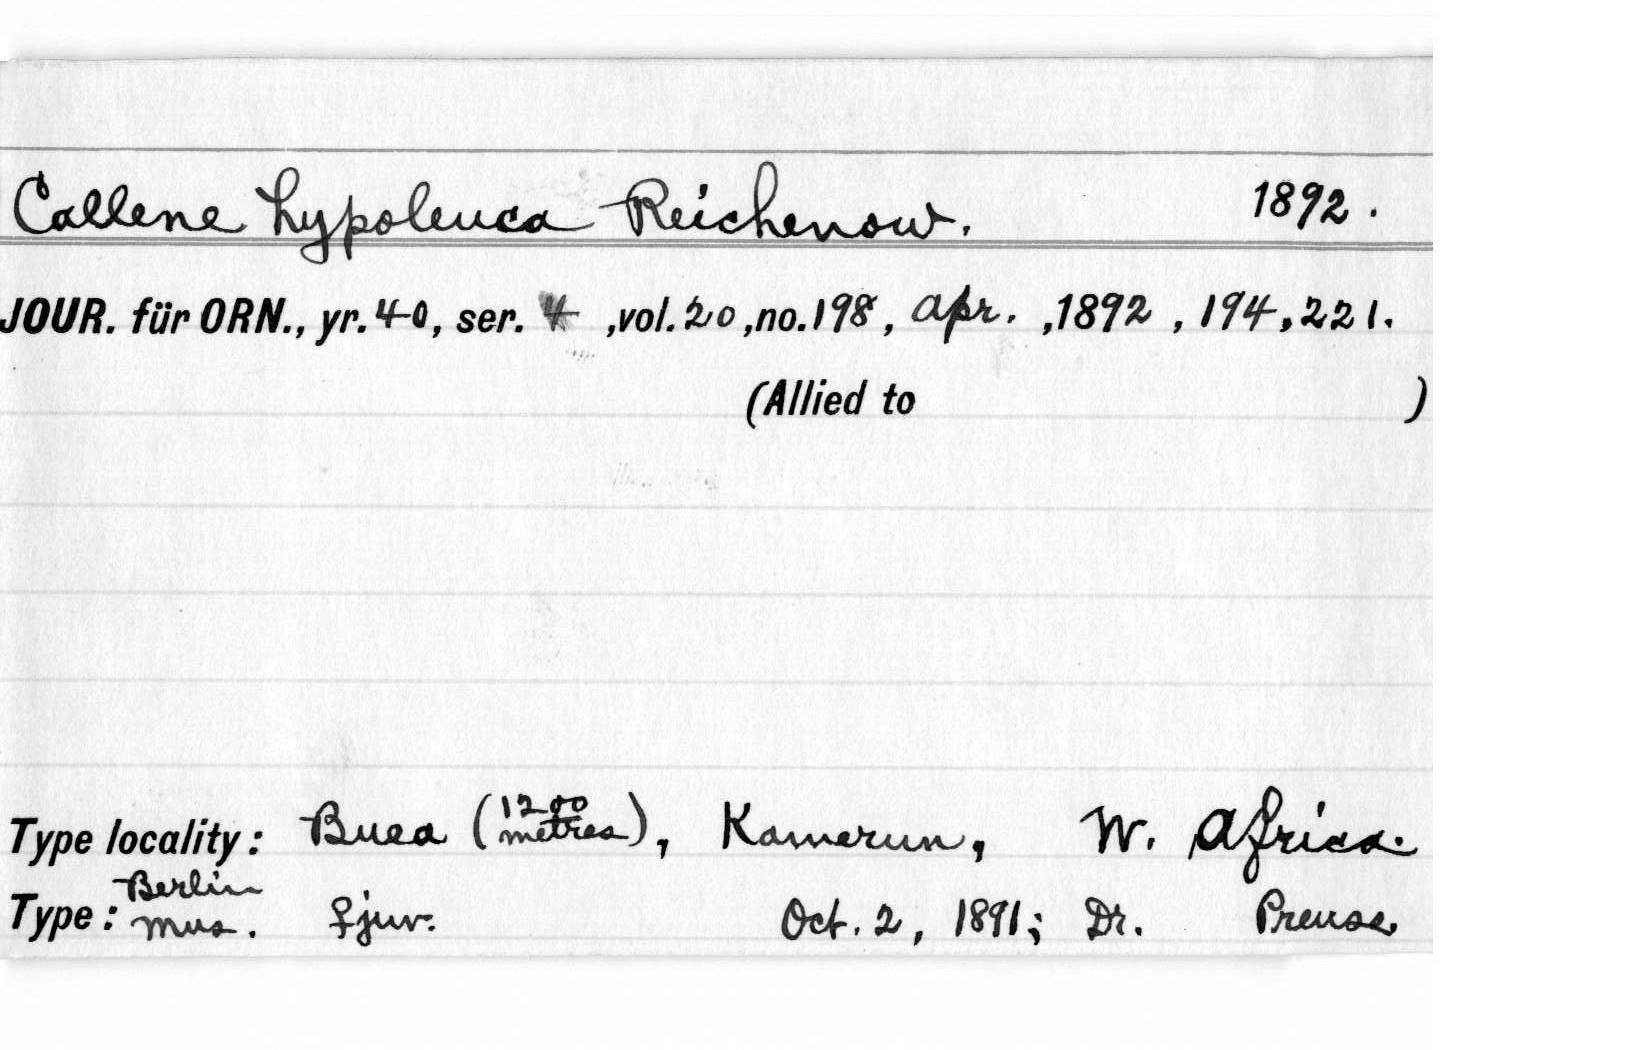 Callene hypoleuca Reichenow. 1892.
JOUR. für ORN., yr. 40, ser. 4, vol. 20, no. 198, Apr., 1892, 194, 221.
(Allied to )
Type locality: Buea (1200 metres), Kamerun, W. Africa.
Type: Berlin Mus. ♀ juv. Oct. 2, 1891; Dr. Preuss.